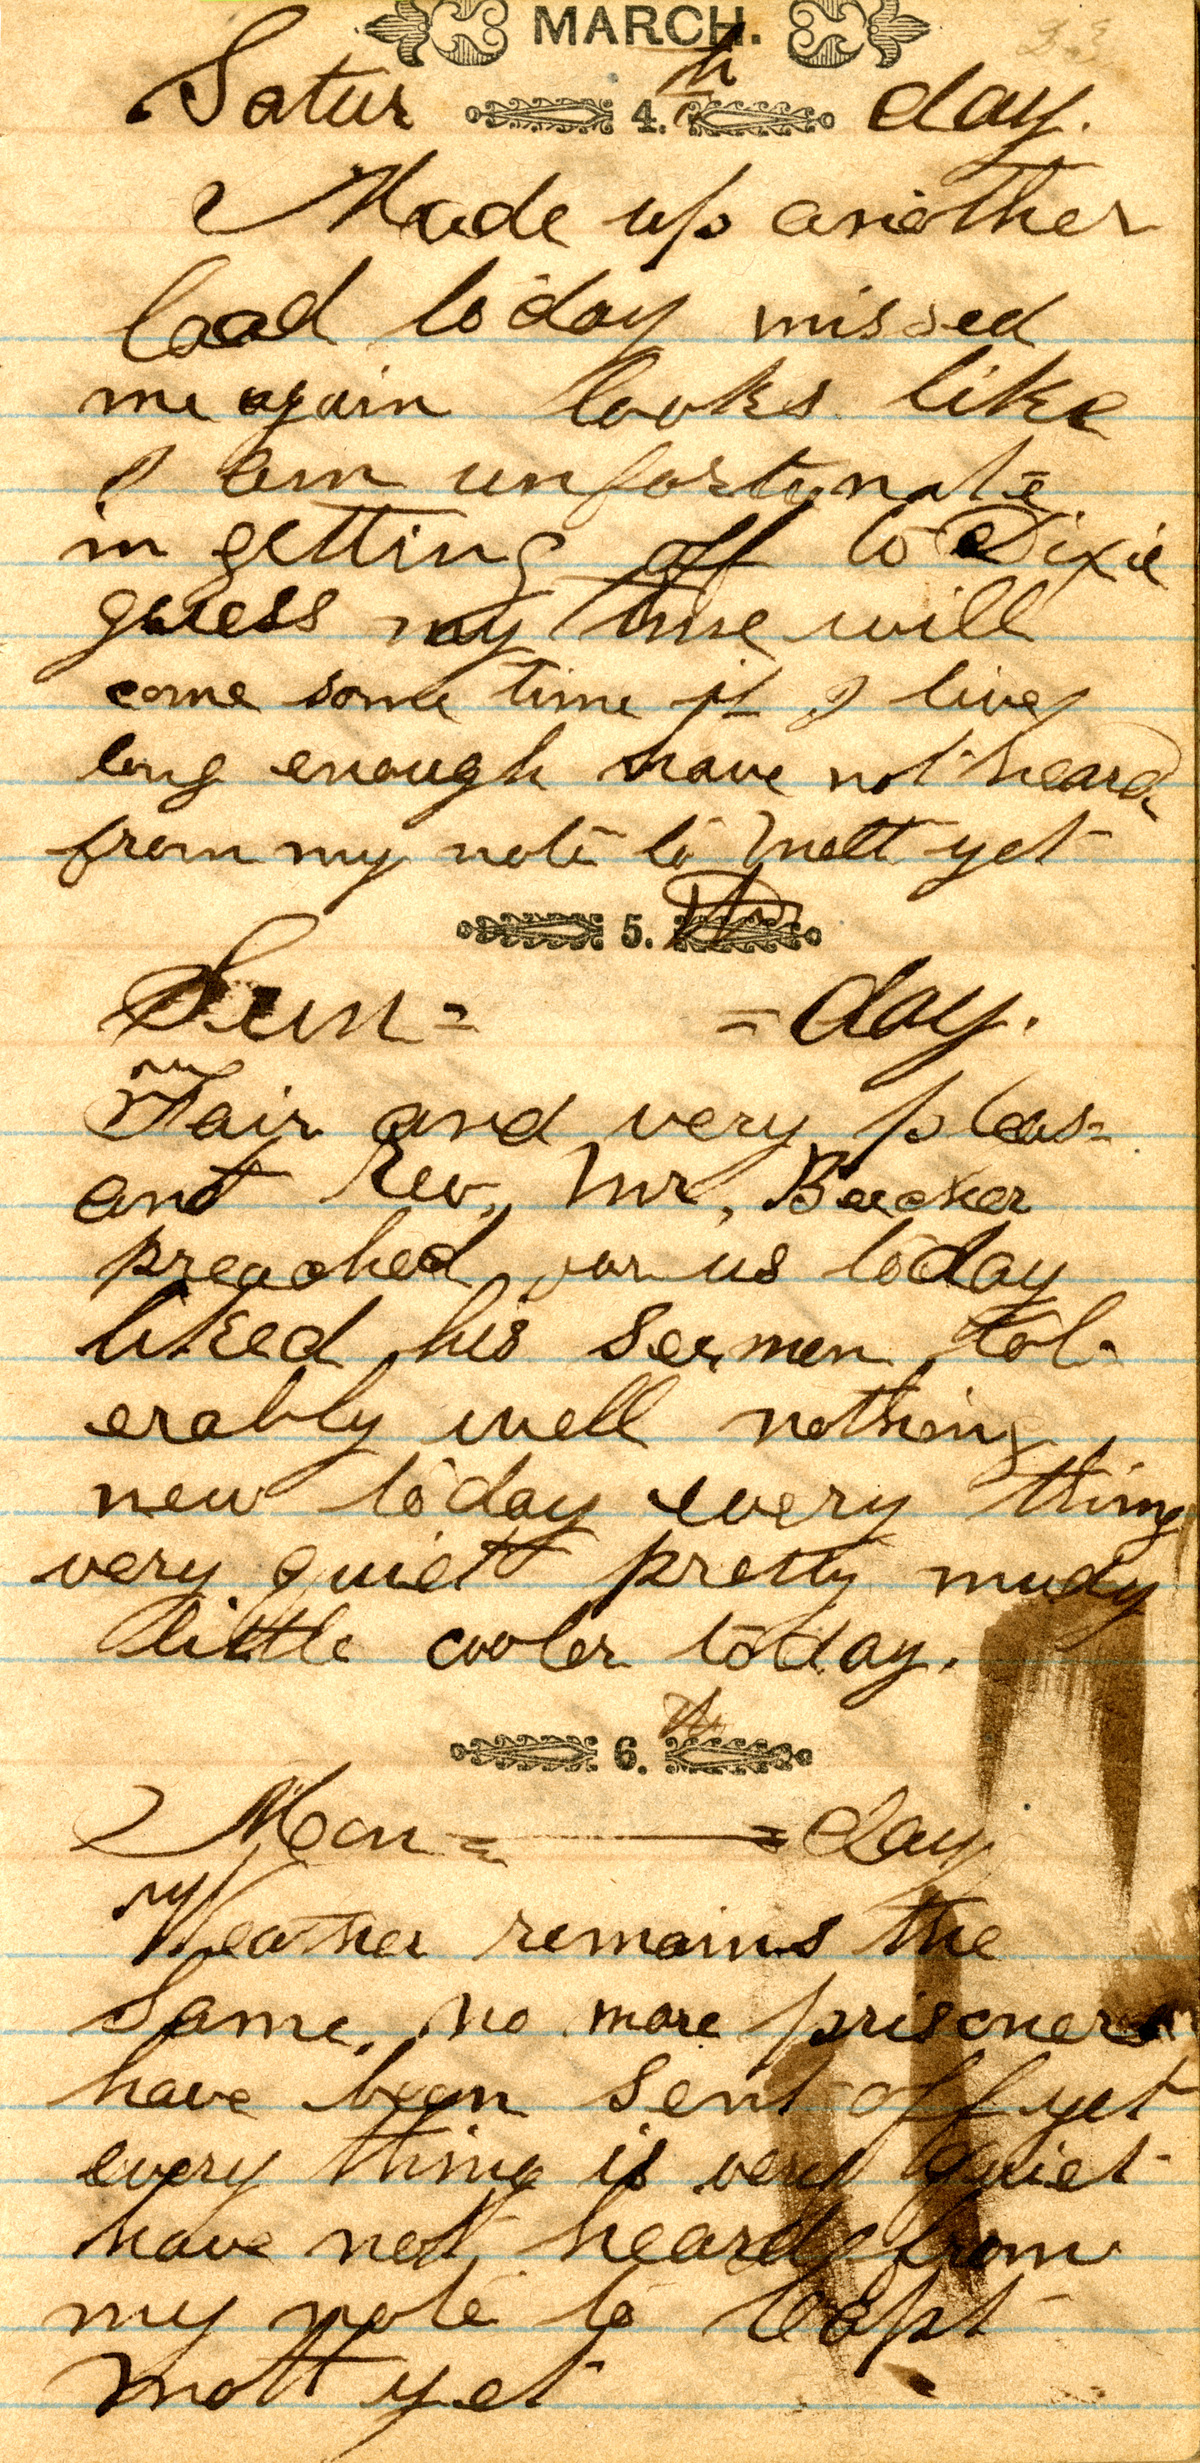 MARCH.
Satur 4.th day.
Made up another
load today missed
me again looks like
I am unfortunate
in getting off to Dixie
guess my time will
come some time if I live
long enough have not heard
from my note to Mott yet
5.th
Sun= =day.
Fair and very pleas=
ant Rev, Mr, Becker
preached for us today
liked his sermon tol-
erably well nothing
new today every thing
very quiet pretty mudy
little cooler today.
6.th
Mon= =day
Weather remains the
same, no more prisoners
have been sent off yet
every thing is very quiet
have not heard from
my note to Capt
Mott yet